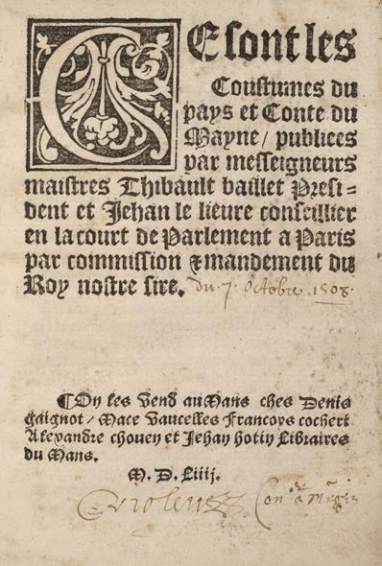 CE sont les
Coustumes du
pays et Conte du
Mayne / publiees
par messeigneurs
maistres Thibault baillet Presi=
dent et Jehan le lieure conseillier
en la court de Parlement a Paris
par commission & mandement du
Roy nostre sire. du .7. octobre .1508.
¶ On les vend au Mans ches Denis
gaignot / Mace Vaucelles Francoys cochert
Alexandre chouen et Jehan hotin Libraires
du Mans.
M. D. Liiij.